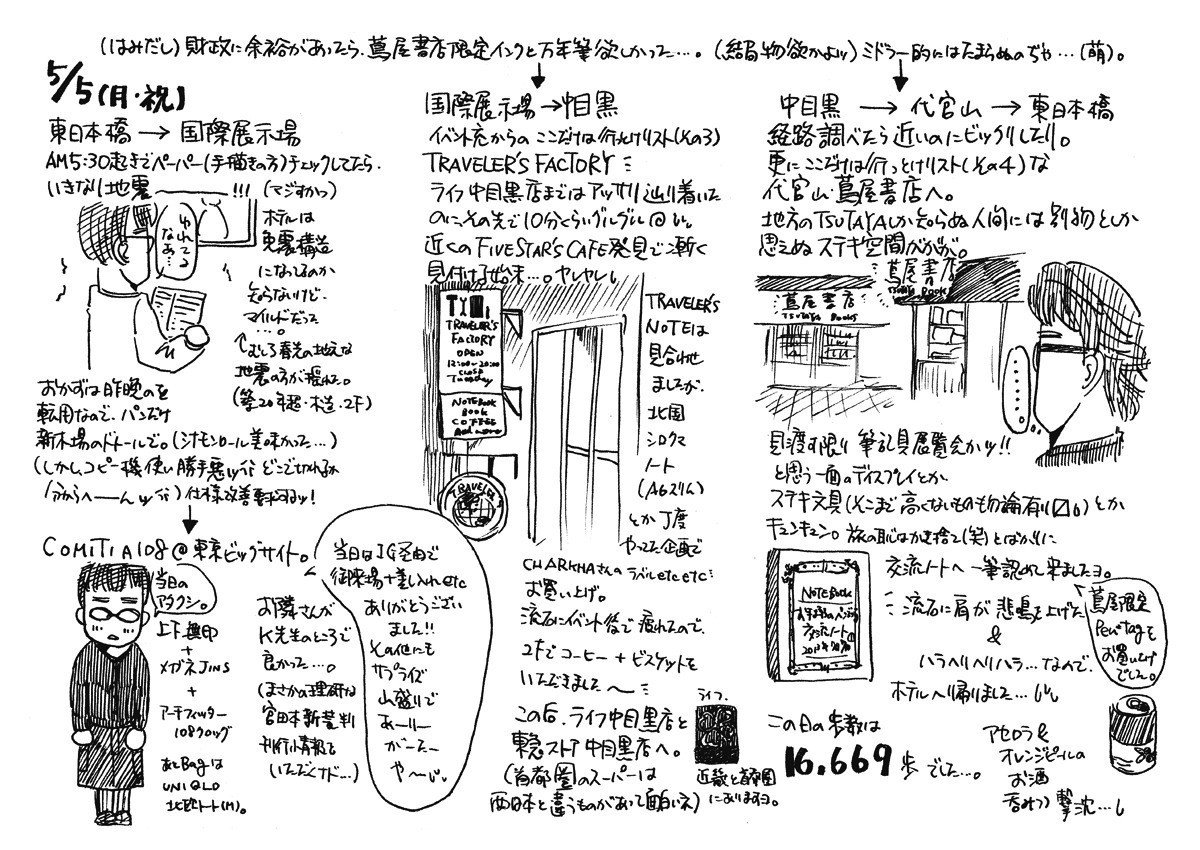 (はみだし)財政に余裕があったら、蔦屋書店限定インクと万年筆欲しかった…。(結局物欲かよッ)ミドラー的にはたまらぬのぢゃ…(萌)。
5/5(月・祝)
東日本橋→国際展示場
AM5:30起きでペーパー(手描きの方)チェックしてたら、
いきなり地震――!!!(マジすかっ)
ゆれてる
なあ…
ホテルは
免震構造
になってるのか
知らないけど、
マイルドだった
…。
↑むしろ春先の地元な
地震の方が揺れた。
(築20年超・木造・2F)
おかずは昨晩のを
転用なので、パンだけ
新木場のドトールで。(シナモンロール美味かった…)
(しかし、コピー機使い勝手悪ッ どこで切れるか
分からへーんッ)仕様改善
COMITIA108@東京ビッグサイト。
当日の
アタクシ。
上下無印
+
メガネJINS
+
アーチフィッター
108クロッグ
あとBagは
UNIQLO
トート(M)。
お隣さんが
K先生のところで
良かった…。
(まさかの理研な
宮田本新装判
刊行情報を
いただくナド…)
当日はJG経由で
御来場+差し入れetc
ありがとうござい
ました!!
その他にも
サプライズ
山盛りで
あーりー
がーたー
や〜じ。
国際展示場→中目黒
イベント充からの ここだけは行っとけリスト(その3)
TRAVELER'S FACTORY
ライフ中目黒店まではアッサリ辿り着いた
のに、その先で10分くらいグルグル@し。
近くのFIVESTAR'S CAFE発見で漸く
見付ける始末…。ヤレヤレし
TRAVELER'S
FACTORY
OPEN
12:00-20:00
CLOSE
Tuesday
NOTEBOOK
BOOK
COFFEE
And more
TRAVELER'S
TRAVELER'S
NOTEは
見合わせ
ましたが、
北国
シロクマ
ノート
(A6スリム)
とか丁度
やってた企画で
CHARKHAさんのラベルetc etc
お買い上げ。
流石にイベント後で疲れたので、
2Fでコーヒー+ビスケットを
いただきました〜
この后、ライフ中目黒店と
東急ストア中目黒店へ。
(首都圏のスーパーは
西日本と違うものがあって面白いネ)
ライフ。
近畿と首都圏
にありますヨ。
中目黒→代官山→東日本橋
経路調べたら近いのにビックリしたり。
更にここだけは行っとけリスト(その4)な
代官山・蔦屋書店へ。
地方のTSUTAYAしか知らぬ人間には別物としか
思えぬステキ空間ががが。
蔦屋書店
TSUTAYA BOOKS
蔦屋書店
TSUTAYA BOOKS
……。
見渡す限り筆記具展覧会かッ!!
と思う一面のディスプレイとか
ステキ文具(そこまで高くないものも勿論有り)とか
キュンキュン。旅の恥はかき捨て(笑)とばかりに
交流ノートへ一筆認めて来ましたヨ。
NOTEBOOK
交流ノート
流石に肩が悲鳴を上げた
&
ハラヘリヘリハラ…なので、
ホテルへ帰りました…
蔦屋限定
Pen+tagを
お買い上げ
でした。
この日の歩数は
16.669
歩でした…。
アセロラ&
オレンジピールの
お酒
呑みつつ撃沈…し